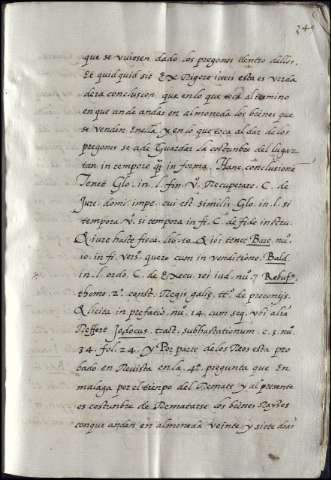 que se uuiesen dado los pregones dentro dellos.
Et quidquid sit ex rigore iuris esta es verda
dera conclusion que en lo que toca al termino
en que ande andar en almoneda los bienes que
se venden en ella. y en lo que toca al dar de los
pregones se a de guardar la costunbre del lugar
tan in tempore qȝ in forma. Hanc conclusione
Tenet Glo. in. l. fin. v. Recuperare. C. de
Jure. domi. impe. cui est similis Glo. in. l. si
tempora v. si tempora in fi. C. de fide instru
& iure haste fisca. lib. 10. & ibi tenet Bar. nu.
10. in fi. vers. quero cum in venditione. Bald.
in. l. ordo. C. de Execu. rei iud. nu. 7 Rebuf.
thomo. 2. const. Regis galie. tt. de preconijs.
& licita in prefatio. nu. 14. cum seq. vbi alia
Reffert Jodocus. tract. subhastationum. c. 3. nu.
34. fol. 24. y Por parte de los Reos esta pro
bado en Reuista en la. 4. pregunta que En
malaga por el tienpo del Remate y al presente
es costunbre de Rematarse los bienes Rayzes
con que anden en almoneda veinte y siete dias